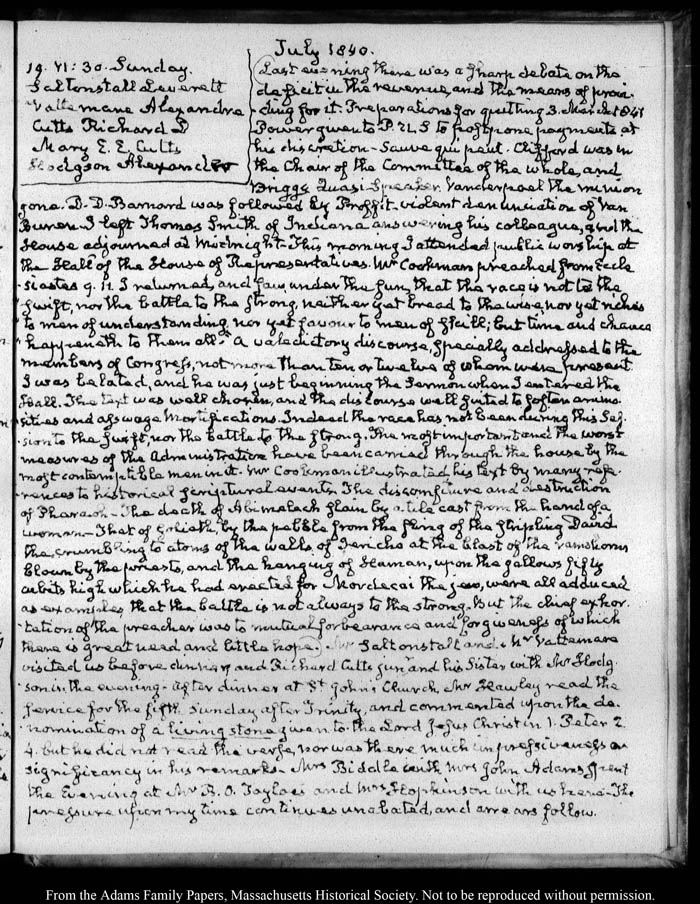 July 1840.
19. VI: 30. Sunday.
Saltonstall Leverett
Vattemare Alexandre
Cutts Richard D
Mary E. E. Cutts
Hodgson Alexander
Last evening there was a sharp debate on the
deficit in the revenue, and the means of provi-
ding for it. Preparations for quitting 3. March 1841
Power given to P. U.S to postpone payments at
his discretion - Sauve qui peut. Clifford was in
the Chair of the Committee of the whole, and
Briggs Quasi-Speaker. Vanderpoel the minion
gone. D. D. Barnard was followed by Proffit. violent denunciation of Van
Buren. I left Thomas Smith of Indiana answering his colleague, and the
House adjourned at Midnight. This morning I attended public worship at
the Hall of the House of Representatives. Mr Cookman preached from Eccle
siastes 9. 11. I returned, and saw under the sun, that the race is not to the
swift, nor the battle to the strong, neither yet bread to the wise, nor yet riches
to men of understanding, nor yet favour to men of skill; but time and chance
happeneth to them all." A valedictory discourse, specially addressed to the
members of Congress, not more than ten or twelve of whom were present.
I was belated, and he was just beginning the Sermon when I entered the
Hall. The text was well chosen, and the discourse well suited to soften animo-
sities and asswage mortifications. Indeed the race has not been during this Ses-
sion to the swift, nor the battle to the strong. The most important and the worst
measures of the Administration have been carried through the house by the
most contemptible men in it. Mr Cookman illustrated his text by many refe-
rences to historical scriptural events. The discomfiture and destruction
of Pharaoh - The death of Abimelech slain by a tile cast from the hand of a
woman - That of Goliath, by the pebble from the sling of the stripling David
the crumbling to atoms of the walls of Jericho at the blast of the ramshorns
blown by the priests, and the hanging of Haman, upon the gallows fifty
cubits high which he had erected for Mordecai the jew, were all adduced
as examples, that the battle is not always to the strong. But the chief exhor-
tation of the preacher was to mutual forbearance and forgiveness of which
there is great need and little hope. Mr Saltonstall and Mr Vattemare
visited us before dinner, and Richard Cutts junr and his Sister with Mr Hodg-
son in the evening. After dinner at St John's Church, Mr Hawley read the
service for the fifth Sunday after Trinity, and commented upon the de-
nomination of a living stone given to the Lord Jesus Christ in 1. Peter 2.
4. but he did not read the verse, nor was there much impressiveness or
significancy in his remarks. Mrs Biddle with Mrs John Adams, spent
the Evening at Mr B. O. Tayloe's and Mrs Hopkinson with us here. The
pressure upon my time continues unabated, and arrears follow.
From the Adams Family Papers, Massachusetts Historical Society. Not to be reproduced without permission.